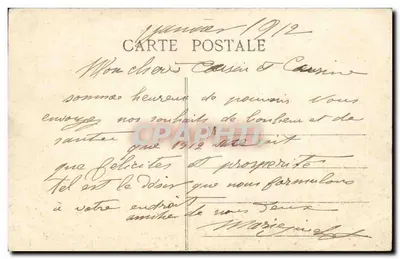 janvier 1912
CARTE POSTALE
Mon cher Cousin et Cousine
sommes heureux de pouvoir vous
envoyez nos souhaits de bonheur et de
santée que 1912 soit
que félicités et prosperité
tel est le désir que nous formulons
à votre endroit
amitiés de nous deux
Marie